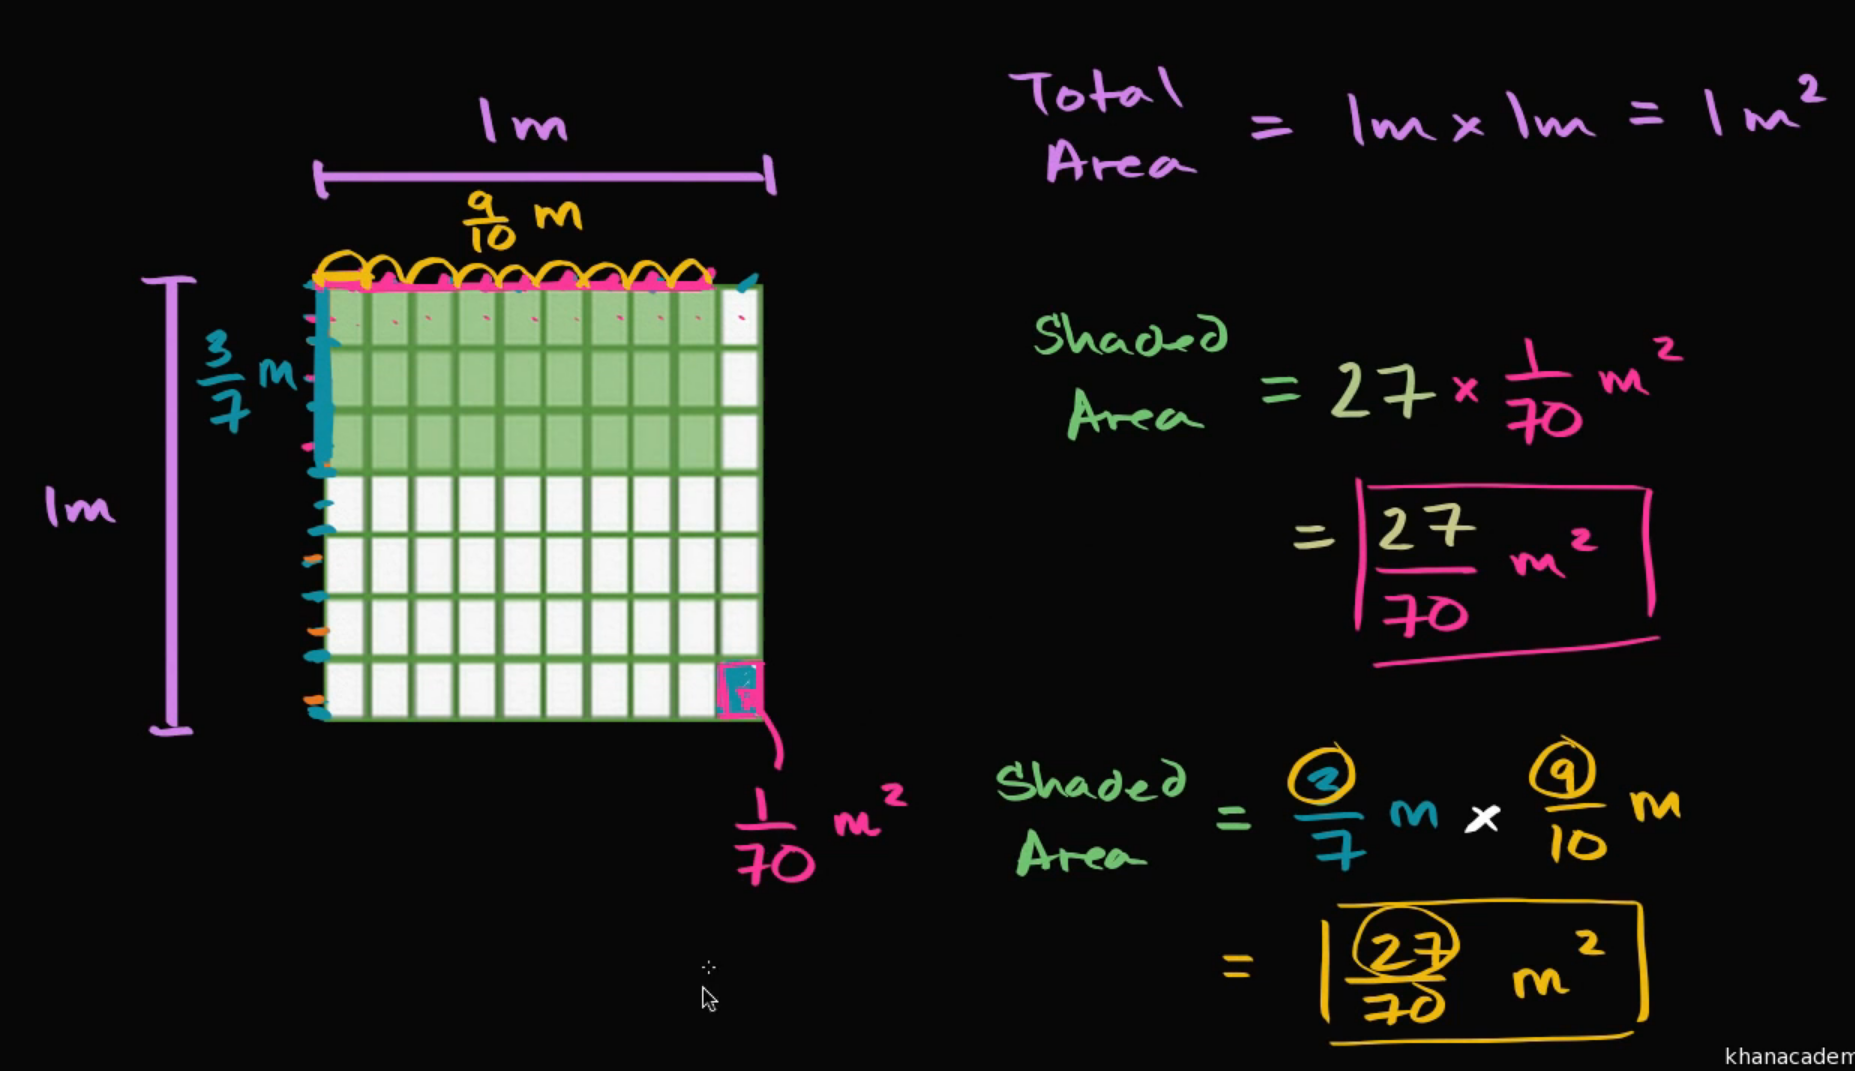 1m
9/10 m
3/7 m
1m
1/70 m²
Total Area = 1m x 1m = 1 m²
Shaded Area = 27 x 1/70 m²
= 27/70 m²
Shaded Area = 3/7 m x 9/10 m
= 27/70 m²
khanacadem